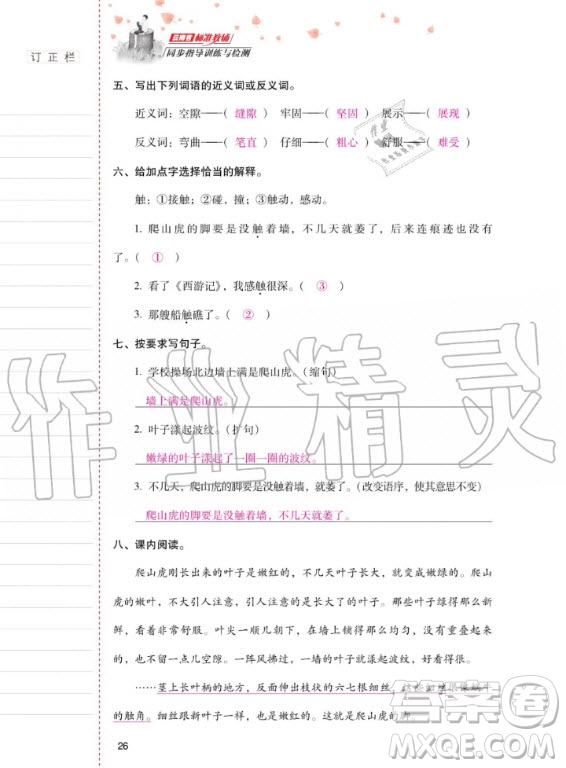 订正栏
三维导 标准教辅
同步指导训练与检测
五、写出下列词语的近义词或反义词。
近义词：空隙——（ 缝隙 ） 牢固——（ 坚固 ） 展示——（ 展现 ）
反义词：弯曲——（ 笔直 ） 仔细——（ 粗心 ） 舒服——（ 难受 ）
六、给加点字选择恰当的解释。
触：①接触；②碰，撞；③触动，感动。
1. 爬山虎的脚要是没触着墙，不几天就萎了，后来连痕迹也没有
了。（ ① ）
2. 看了《西游记》，我感触很深。（ ③ ）
3. 那艘船触礁了。（ ② ）
七、按要求写句子。
1. 学校操场北边墙上满是爬山虎。（缩句）
墙上满是爬山虎。
2. 叶子漾起波纹。（扩句）
嫩绿的叶子漾起了一圈一圈的波纹。
3. 不几天，爬山虎的脚要是没触着墙，就萎了。（改变语序，使其意思不变）
爬山虎的脚要是没触着墙，不几天就萎了。
八、课内阅读。
爬山虎刚长出来的叶子是嫩红的，不几天叶子长大，就变成嫩绿的。爬山
虎的嫩叶，不大引人注意，引人注意的是长大了的叶子。那些叶子绿得那么新
鲜，看着非常舒服。叶尖一顺儿朝下，在墙上铺得那么均匀，没有重叠起来的，
也不留一点儿空隙。一阵风拂过，一墙的叶子就漾起波纹，好看得很。
……茎上长叶柄的地方，反面伸出枝状的六七根细丝，这些细丝很像蜗牛
的触角。细丝跟新叶子一样，也是嫩红的。这就是爬山虎的脚。
26
作业精灵
答案圈
MXQE.COM